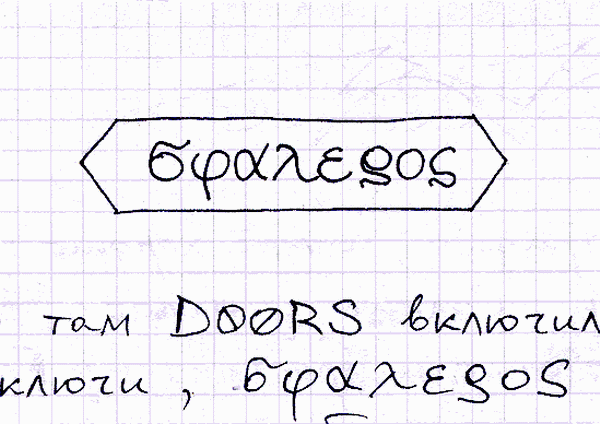 σφαλερος
там DØØRS включил
ключи, σφαλερος